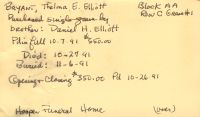 Bryant, Thelma E. Elliott Block AA
Purchased single grave by Row C Grave #1
brother: Daniel H. Elliott
Pd in full 10-7-91 $550.00
Died: 10-27-91
Buried: 11-6-91
Opening + Closing $350.00 Pd 10-26-91
Hooper Funeral Home